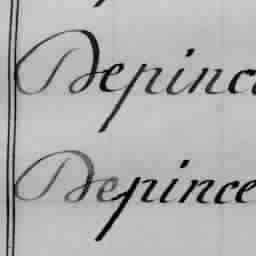 Depince
Depince